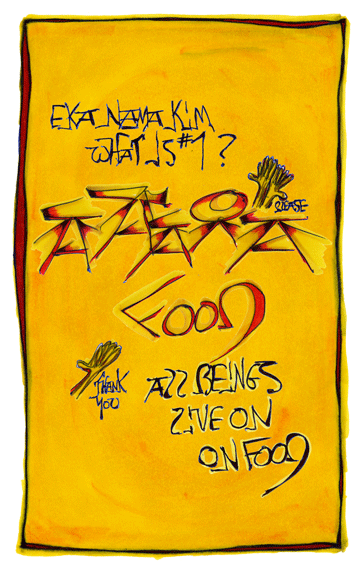 EKA NAMA KIM
WHAT IS #1 ?
PLEASE
FOOD
THANK
YOU
ALL BEINGS
LIVE ON
ON FOOD